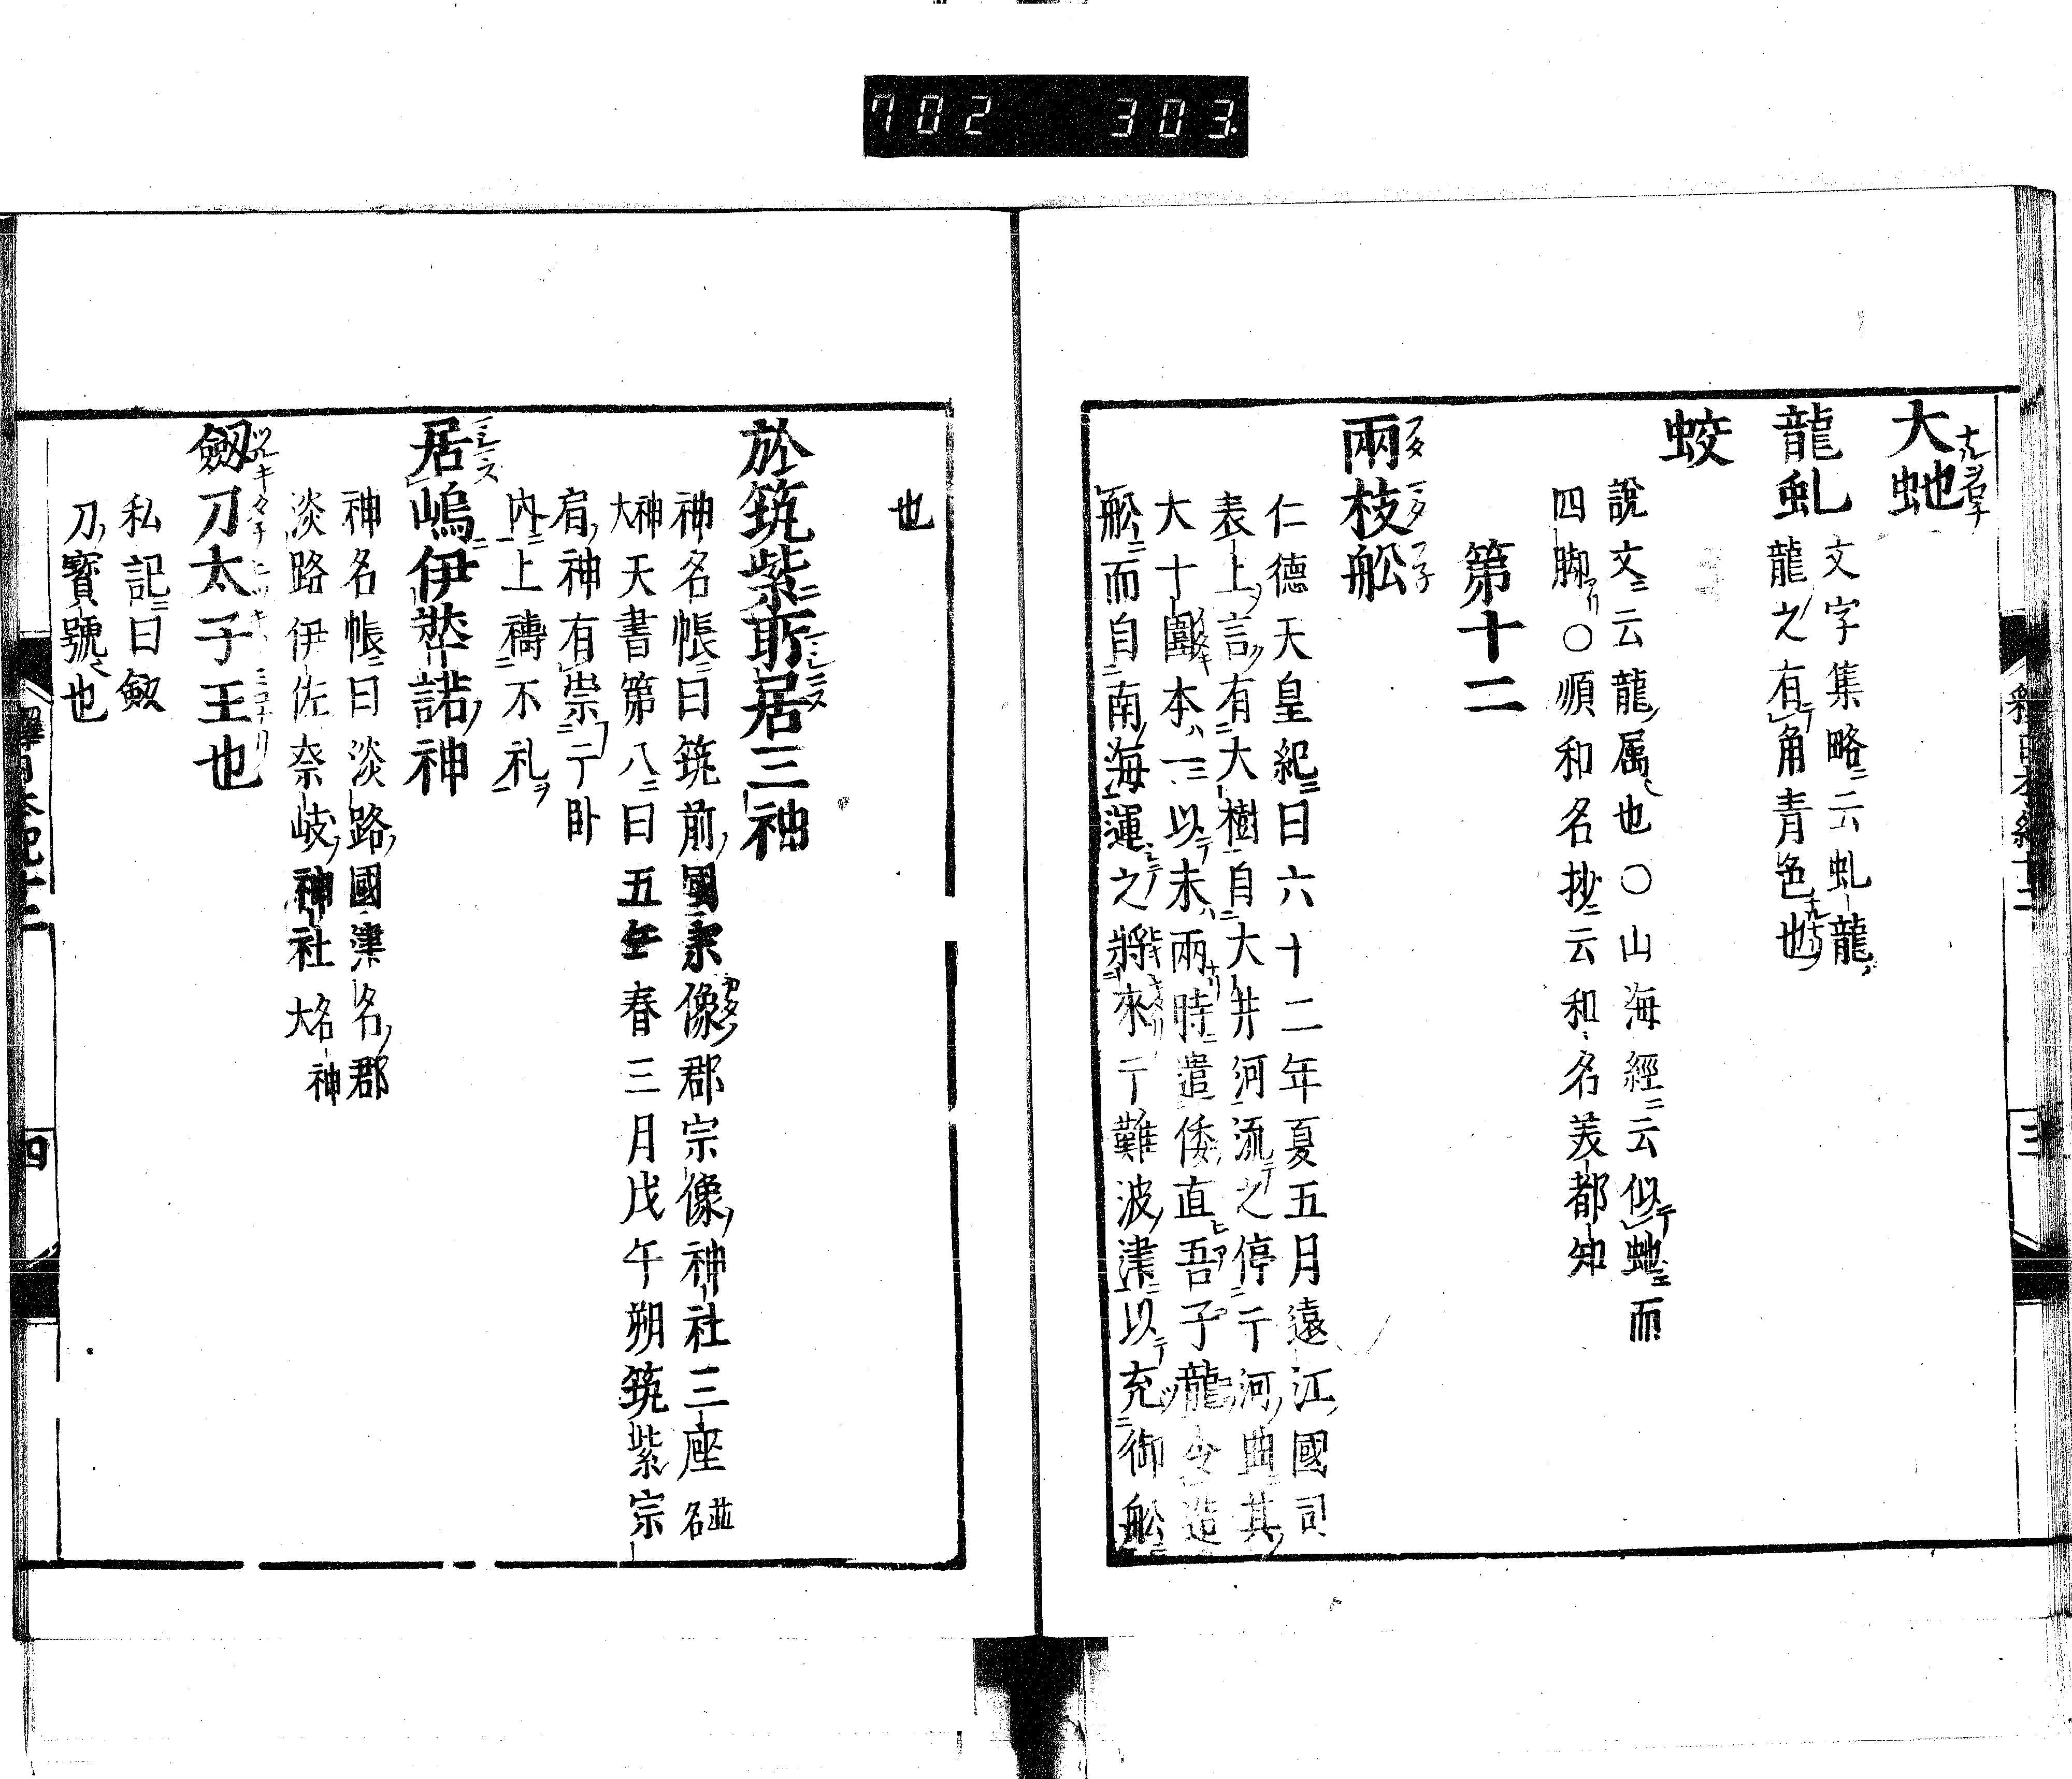 702 303
大虵
龍虬
文字集略ニ云虬龍ノ
龍之ノ有テ角青色也
蛟
說文ニ云龍ノ属也〇山海經ニ云似テ虵ニ而
四脚アリ〇順和名抄ニ云和名美都知
第十二
兩枝舩
仁德天皇紀ニ曰六十二年夏五月遠江ノ國司
表上言有大樹自大井河流之停亍河曲其
大十圍本一以末兩時遣倭直吾子龍令造
舩而自南海運之將來亍難波津以充御舩
也
於筑紫所居三神
神名帳ニ曰筑前ノ國宗像郡宗像ノ神社三座並名
神大天書第八ニ曰五年春三月戊午朔筑紫宗
肩ノ神有崇亍卧
內ニ上禱ニ不礼
居嶋伊奘諾ノ神
神名帳ニ曰淡路ノ國津名ノ郡
淡路伊佐奈岐ノ神社名神大
劔刀太子王也
私記ニ曰劔
刀ノ寳號也
四
三